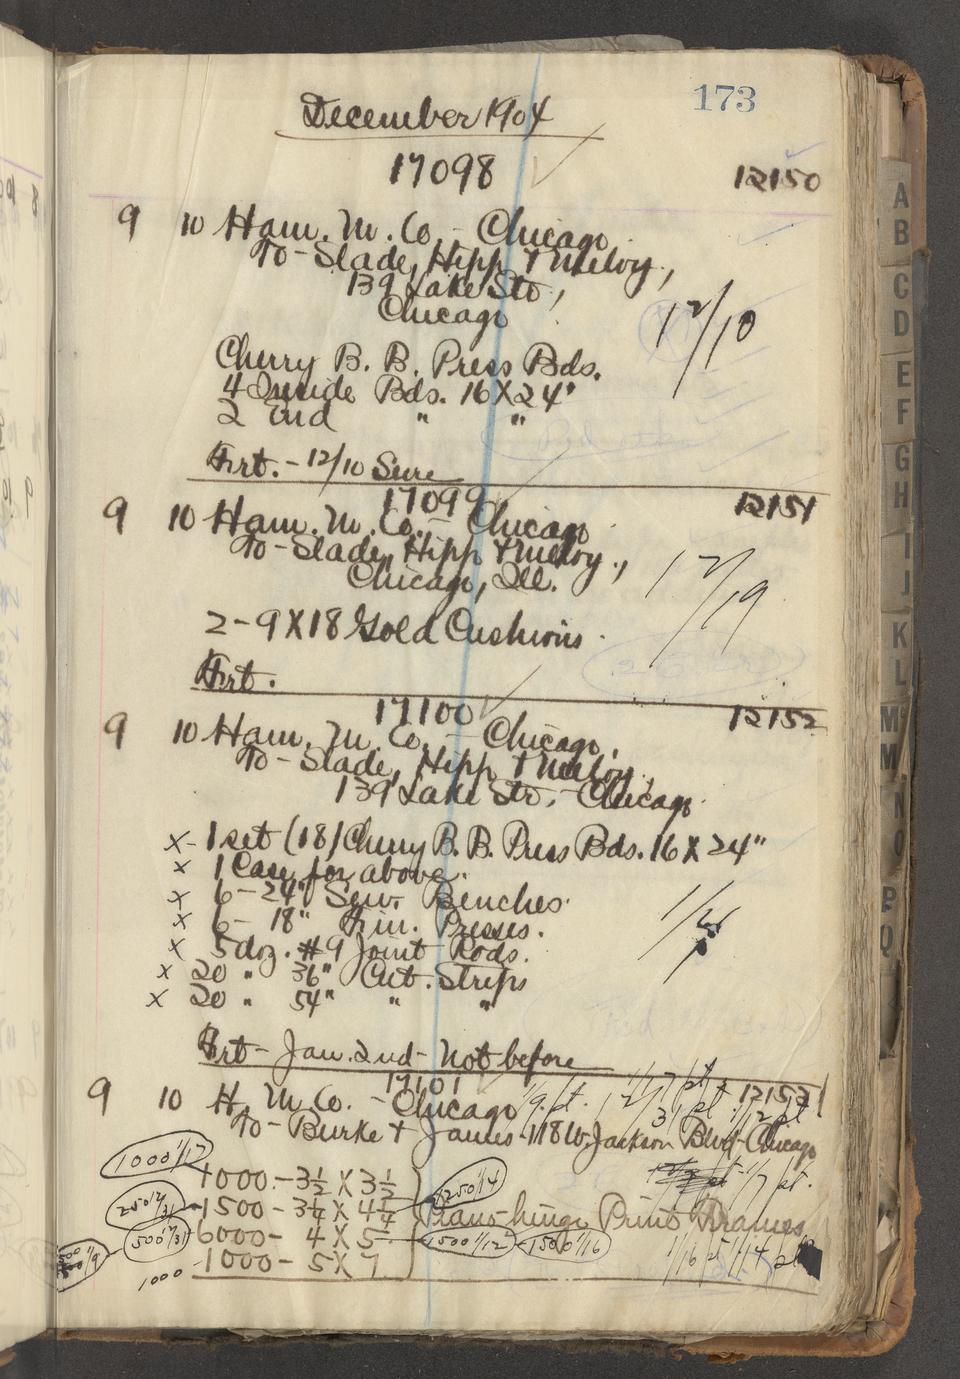 173
December 1904
17098 12150
9 10 Ham. M. Co. - Chicago.
To - Slade, Hipp & Meloy,
139 Lake Str.,
Chicago
12/10
Cherry B. B. Press Bds.
4 Inside Bds. 16 X 24"
2 End " "
Frt. - 12/10 Sure
17099 12151
9 10 Ham. M. Co. - Chicago
To - Slade, Hipp & Meloy.,
Chicago, Ill.
12/19
2 - 9 X 18 Gold Cushions.
Frt.
17100 12152
9 10 Ham. M. Co. - Chicago.
To - Slade, Hipp & Meloy.
139 Lake Str. - Chicago.
X - 1 set (18) Cherry B. B. Press Bds. 16 X 24"
X 1 Case for above.
X 6 - 24" Sew. Benches.
X 6 - 18" Fin. Presses.
X 5 doz. #9 Joint Rods.
X 20 " 36" Cut. Strips
X 20 " 54" " "
Frt - Jan. 2nd - Not before
17101 12153
9 10 H. M. Co. - Chicago 1/9 pt. 12/17 pt
12/31 pt. 1/12 pt
To - Burke & James - 118 W. Jackson Blvd - Chicago
1000 1/17 1/7 pt.
1000 - 3 1/2 X 3 1/2 1250 1/4
250 12/31 1500 - 3 1/4 X 4 1/4 Piano hinge Print Frames
500 12/31 6000 - 4 X 5 1500 1/12 1500 1/16
1000 1000 - 5 X 7 1/16 pt 1/14 pt
A
B
C
D
E
F
G
H
I
J
K
L
Mc
M
N
O
P
Q